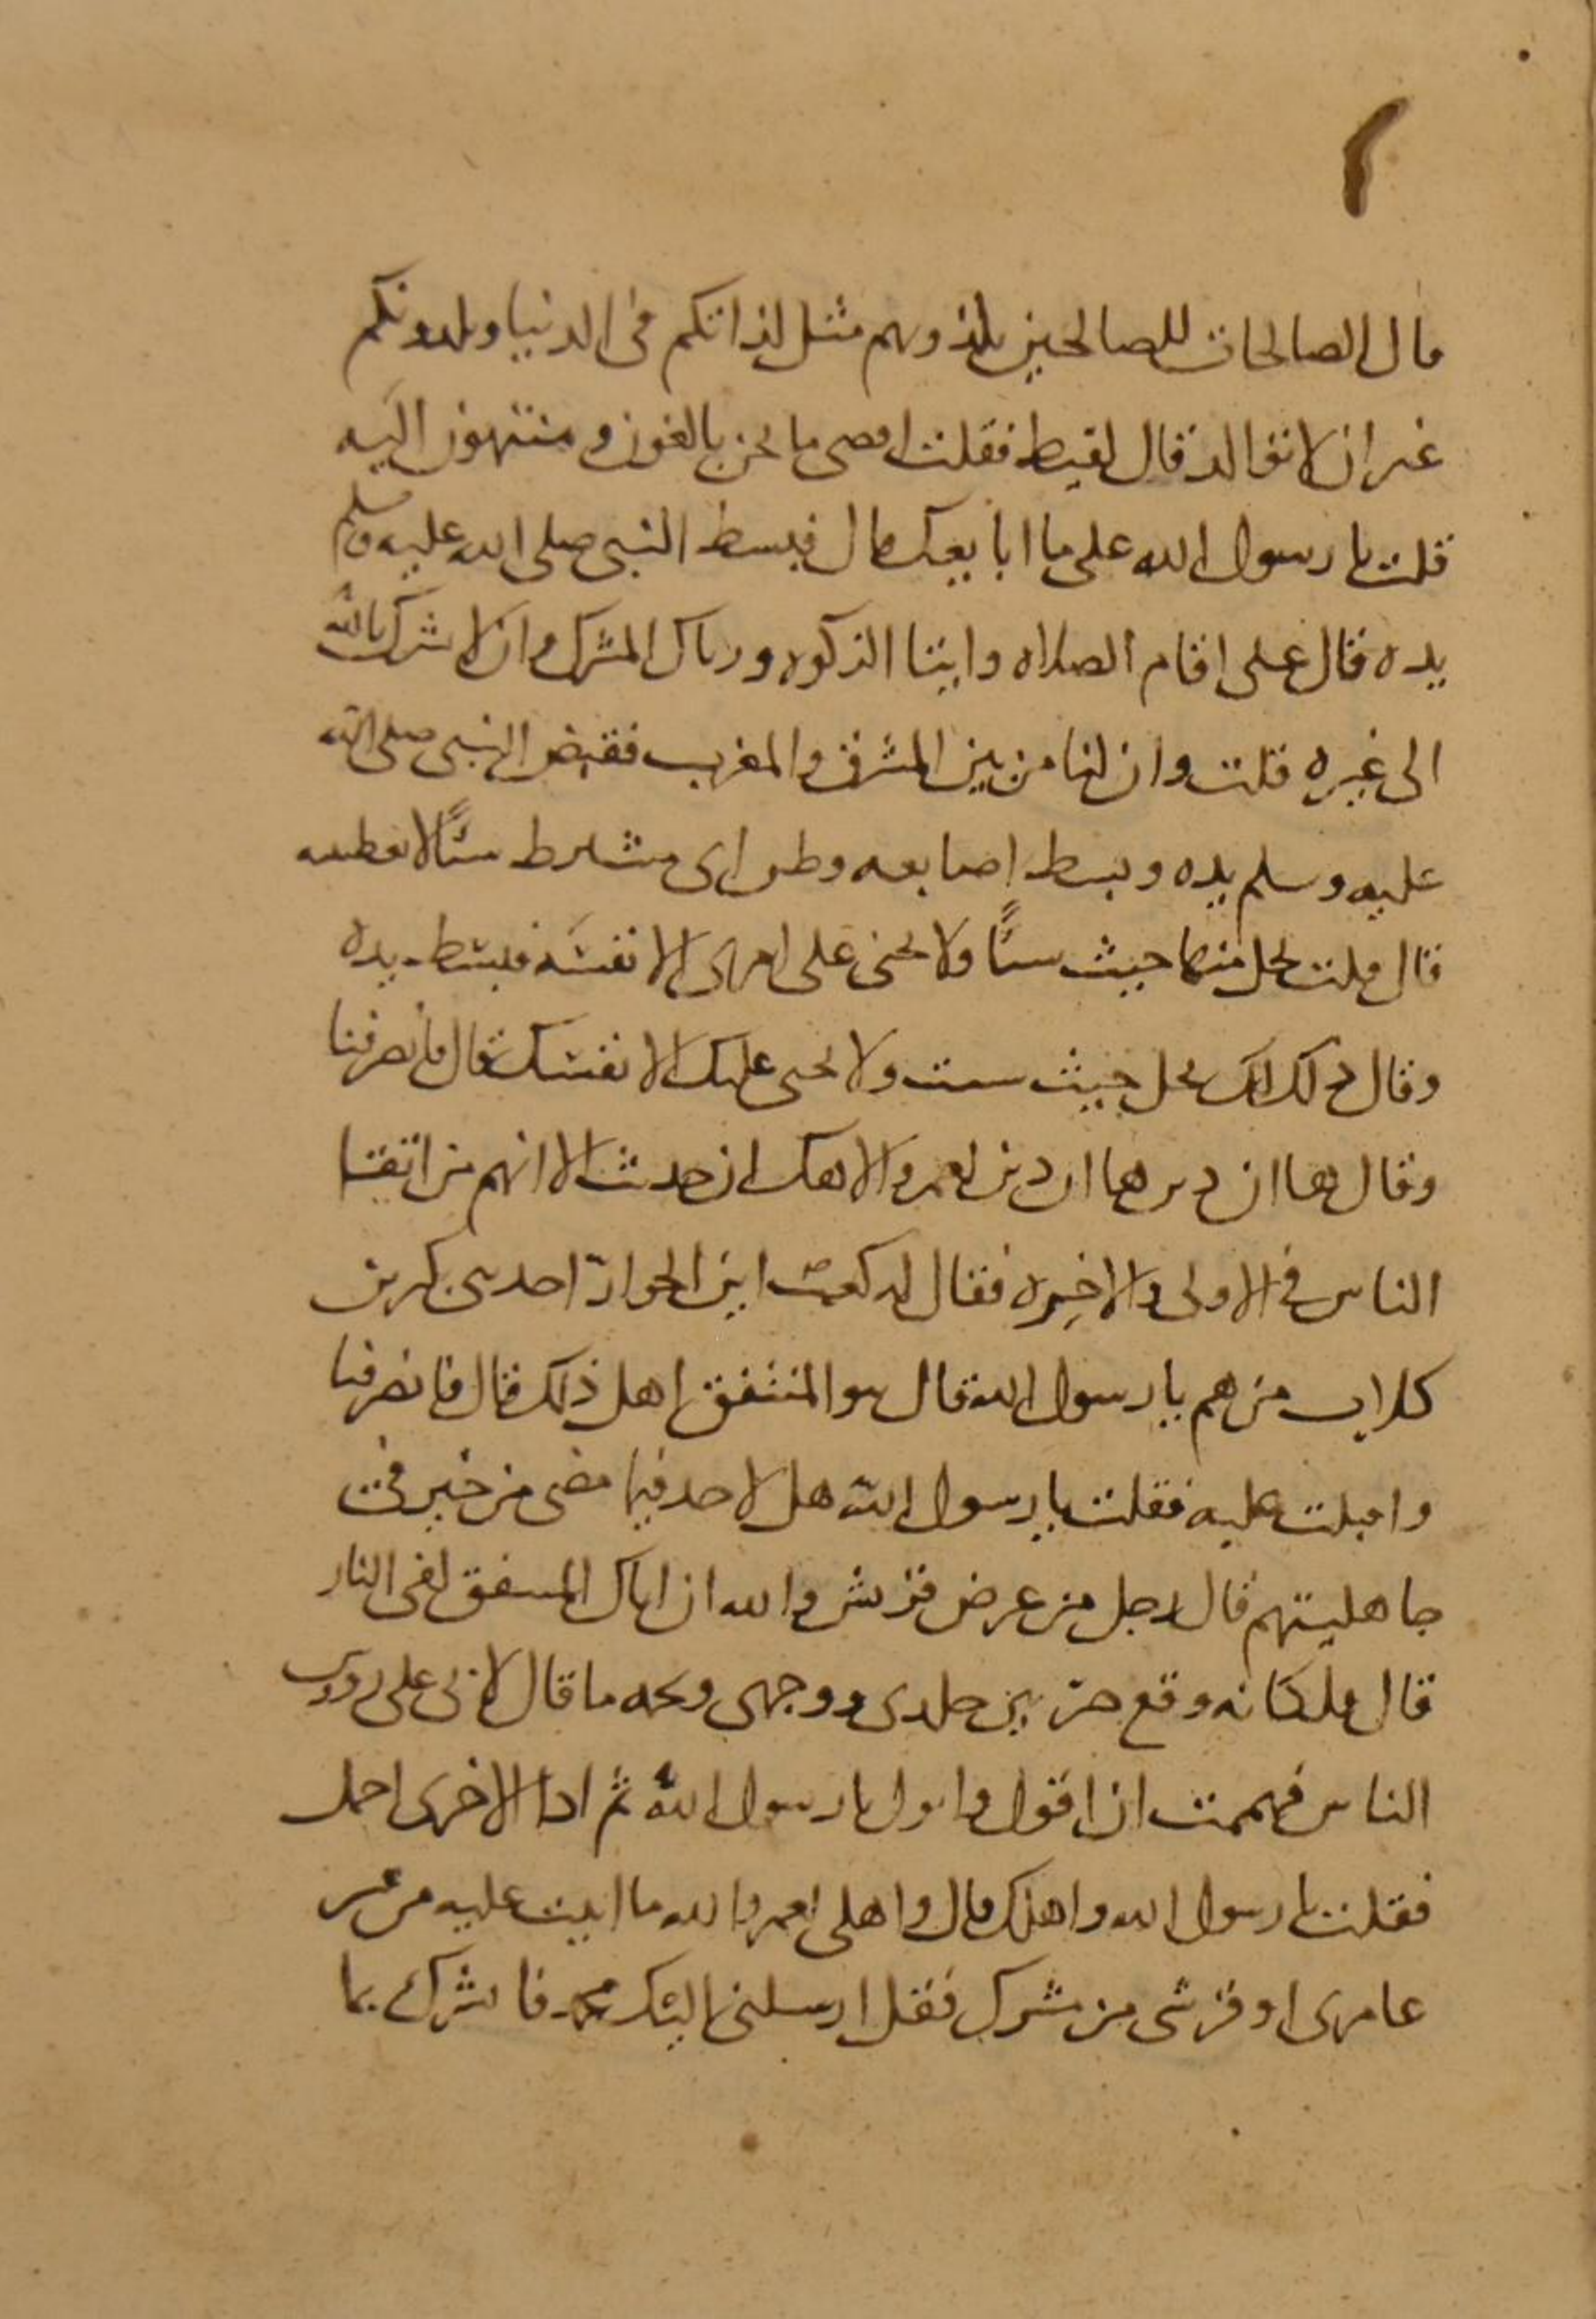 ٢
قال الصالحات للصالحين يلذونهم مثل لذاتكم فى الدنيا ويلذونكم
غير ان لا توالد قال لقيط فقلت اقصى ما نحن بالغون و منتهون اليه
قلت يا رسول الله على ما ابايعك قال فبسط النبى صلى الله عليه وسلم
يده قال على اقام الصلاه وايتا الزكوه وزيال المشرك وان لا تشرك بالله
الى غيره قلت وان لنا من بين المشرق والمغرب فقبض النبى صلى الله
عليه وسلم يده وبسط اصابعه وظن اى مشترط شئًا لا يعطينه
قال قلت نحل منها حيث شئًا ولا يجنى على امرى الا نفسه فبسط يده
وقال ذلك لك تحل حيث شئت ولا يجنى عليك الا نفسك قال فانصرفنا
وقال ها ان ذين ها ان ذين لعمر والاهك ان حدثت الا انهم من اتقا
الناس فى الاولى والاخيره فقال له كعب ابن الحوارة احد بنى بكر بن
كلاب من هم يا رسول الله قال بنو المنتفق اهل ذلك قال فانصرفنا
واقبلت عليه فقلت يا رسول الله هل لاحد فيما مضى من خير فى
جاهليتهم قال رجل من عرض قريش والله ان اباك المنتفق لفى النار
قال فلكانه وقع حر بين جلدى ووجهى ولحمه ما قال لابى على روس
الناس فهممت ان اقول وابوك يا رسول الله ثم اذا الاخرى اجمل
فقلت يا رسول الله واهلك قال واهلى لعمر والله ما اتيت عليه من قبر
عامرى او قرشى من مشرك فقل ارسلنى اليك محمد فابشرك بما